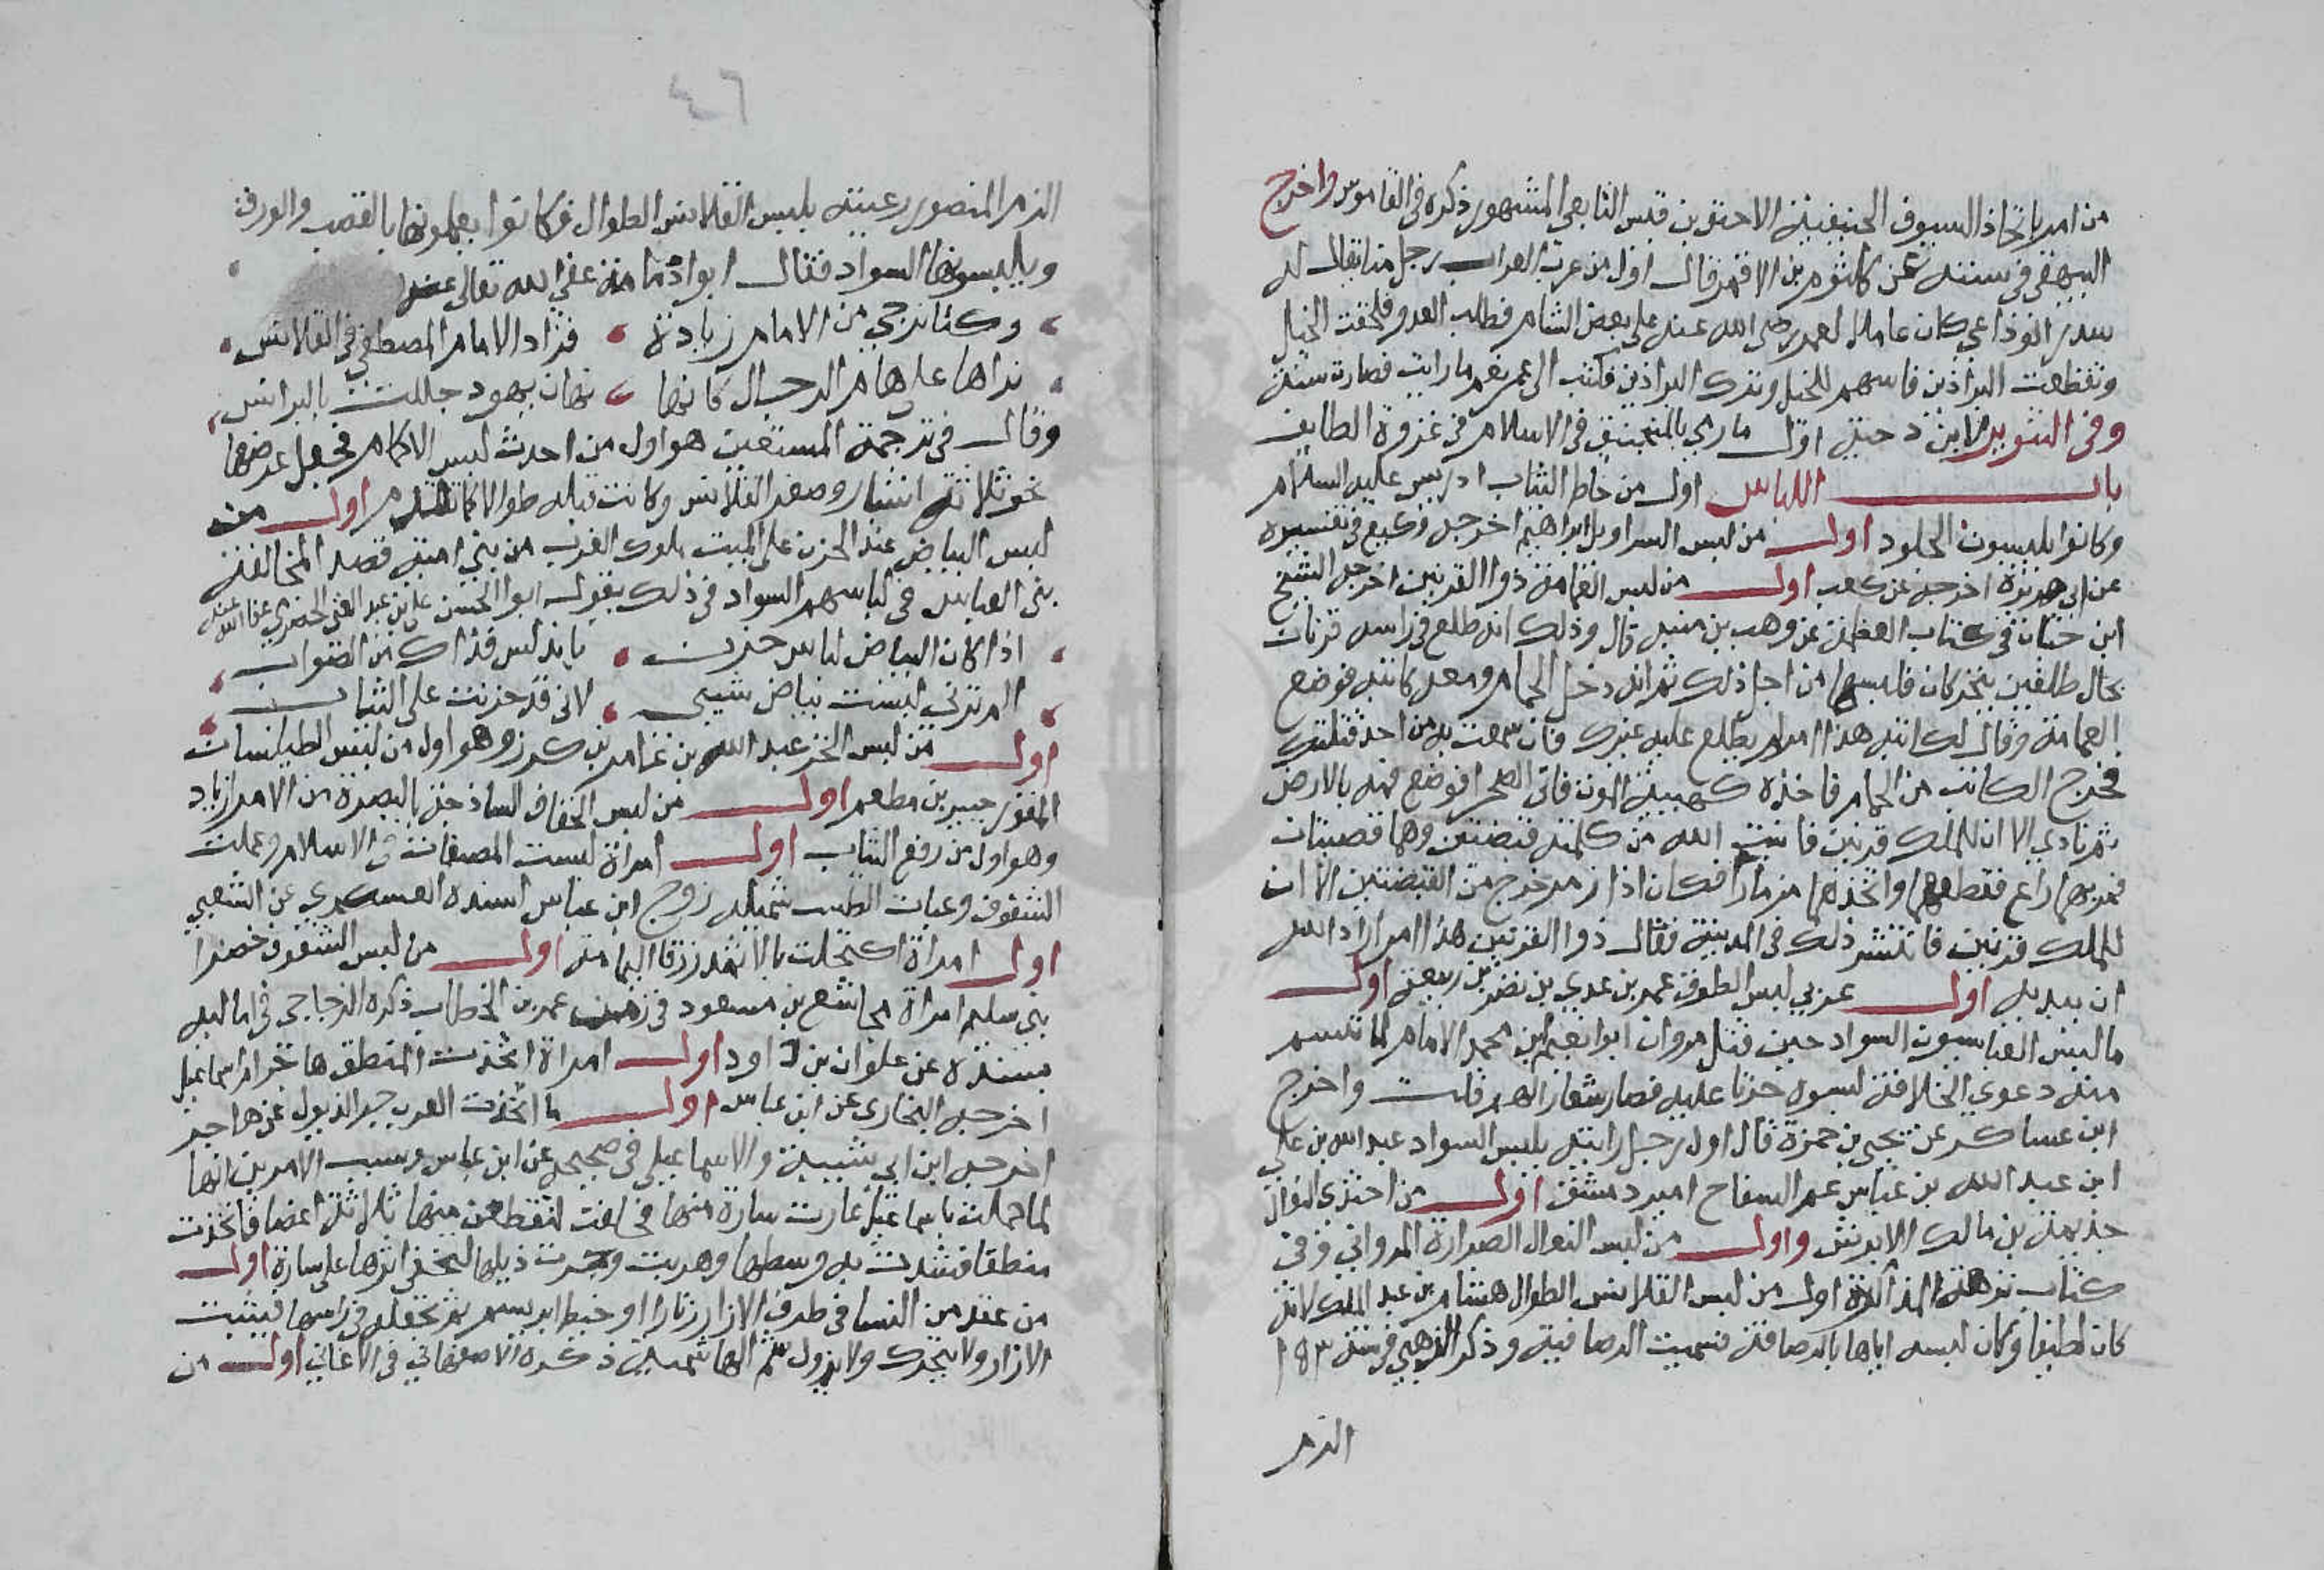 من امر باتخاذ السيوف الحنيفية الاحنف بن قيس التابعي المشهور ذكره في القاموس واخرج
البيهقي في سننه عن كلثوم بن الاقمر قال اول من عرب العراب رجل منا يقال له
الوذاعي كان عاملا لعمر رضي الله عنه على بعض الشام فطلب العدو فلحقت الخيل
وتقطعت البراذين فاسهم للخيل وترك البراذين فكتب الى عمر نعم ما رايت فصارت سنة
وفي التنوير لابن دحية اول ما رمي بالمنجنيق في الاسلام في غزوة الطايف
باب اللباس اول من خاط الثياب ادريس عليه السلام
وكانوا يلبسون الجلود اول من لبس السراويل ابراهيم اخرجه وكيع في تفسيره
عن ابي هريرة اخرجه عن كعب اول من لبس العمامة ذوا القرنين اخرجه الشيخ
ابن حيان في كتاب العظمة عن وهب بن منبه قال وذلك انه طلع في راسه قرنان
كالظلفين يتحركان فلبسها من اجل ذلك ثم انه دخل الحمام ومعه كاتبه فوضع
العمامة وقال لكاتبه هذا امر لم يطلع عليه غيرك فان سمعت به من احد قتلتك
فخرج الكاتب من الحمام فاخذه كهيئة الموت فاتى الصحرا فوضع فمه بالارض
ثم نادي الا ان للملك قرنين فانبت الله من كلمته قصبتين وهما قصبتان
فمر بهما راع فقطعهما واتخذهما مزمارا فكان اذا زمر خرج من القصبتين الا ان
للملك قرنين فانتشر ذلك في المدينة فقال ذوا القرنين هذا امر اراد الله
ان يبديه اول عربي لبس الطوق عمر بن عدي بن نضر بن ربيعة اول
ما لبس العباسيون السواد حين قتل مروان ابراهيم ابن محمد الامام لما تسم
منه دعوي الخلافة لبسوه حزنا عليه فصار شعارا لهم قلت واخرج
ابن عساكر عن يحيى بن حمزة قال اول رجل رايته يلبس السواد عبد الله بن علي
ابن عبد الله بن عباس عم السفاح امير دمشق اول من احتذى النعال
جذيمة بن مالك الابرش واول من لبس النعال الصرارة المرواني وفي
كتاب نزهة المذاكرة اول من لبس القلانس الطوال هشام بن عبد الملك لانه
كان لطيفا وكان لبسه اياها بالرصافة فسميت الرصافية وذكر الذهبي في سنة ١٥٣
الزم
٦٣
الزم المنصور رعيته بلبس القلانس الطوال فكانوا يعملونها بالقصب والورق
ويلبسونها السواد فقال ابو دلامة عفي الله تعالى عنه
وكنا نرجي من الامام زيادة فزاد الامام المصطفي في القلانس
نراها على هام الرجال كانها دنان يهود جللت بالبرانس
وقال في ترجمة المستعين هو اول من احدث لبس الاكمام فجعل عرضها
نحو ثلاثة اشبار وصغر القلانس وكانت قبله طوالا اول من
لبس البياض عند الحزن على الميت ملوك الغرب من بني امية قصد المخالفة
بني العباس في لباسهم السواد في ذلك يقول ابوا الحسن علي بن عبد الغني الحصري عفا الله عنه
اذا كان البياض لباس حزن باندلس فذاك من الصواب
الم ترني لبست بياض شيبي لاني قد حزنت على الشباب
اول من لبس الخز عبد الله بن عامر بن كرز وهو اول من لبس الطيلسان
المقور جبير بن مطعم اول من لبس الخفاف الساذجة بالبصرة من الامر زياد
وهو اول من رقع الثياب اول امراة لبست المصبغات في الاسلام وعملت
الشقوق وعبات الطيب شميلة زوج ابن عباس اسنده العسكري عن الشعبي
اول امراة اكتحلت بالاثمد زرقا اليمامة اول من لبس الشقوق خضرا
بني سليم امراة مجاشع بن مسعود في زمن عمر بن الخطاب ذكره الزجاجي في اماليه
بسنده عن علوان بن داود اول امراة اتخذت المنطق هاجر ام اسماعيل
اخرجه البخاري عن ابن عباس اول ما اتخذت العرب جر الذيول عن هاجر
اخرجه ابن ابي شيبة والاسماعيلي في صحيحه عن ابن عباس وسبب الامرين انها
لما حملت باسماعيل غارت سارة منها فحلفت لتقطعن منها ثلاثة اعضا فاتخذت
منطقا فشدت به وسطها وهربت وجرت ذيلها لتخفي اثرها على سارة اول
من عقد من النسا في طرف الازار زنارا او خيط ابريسم ثم تجعله في راسها فيثبت
الازار ولا يتحرك ولا يزول الهاشمية ذكره الاصفهاني في الاغاني اول من